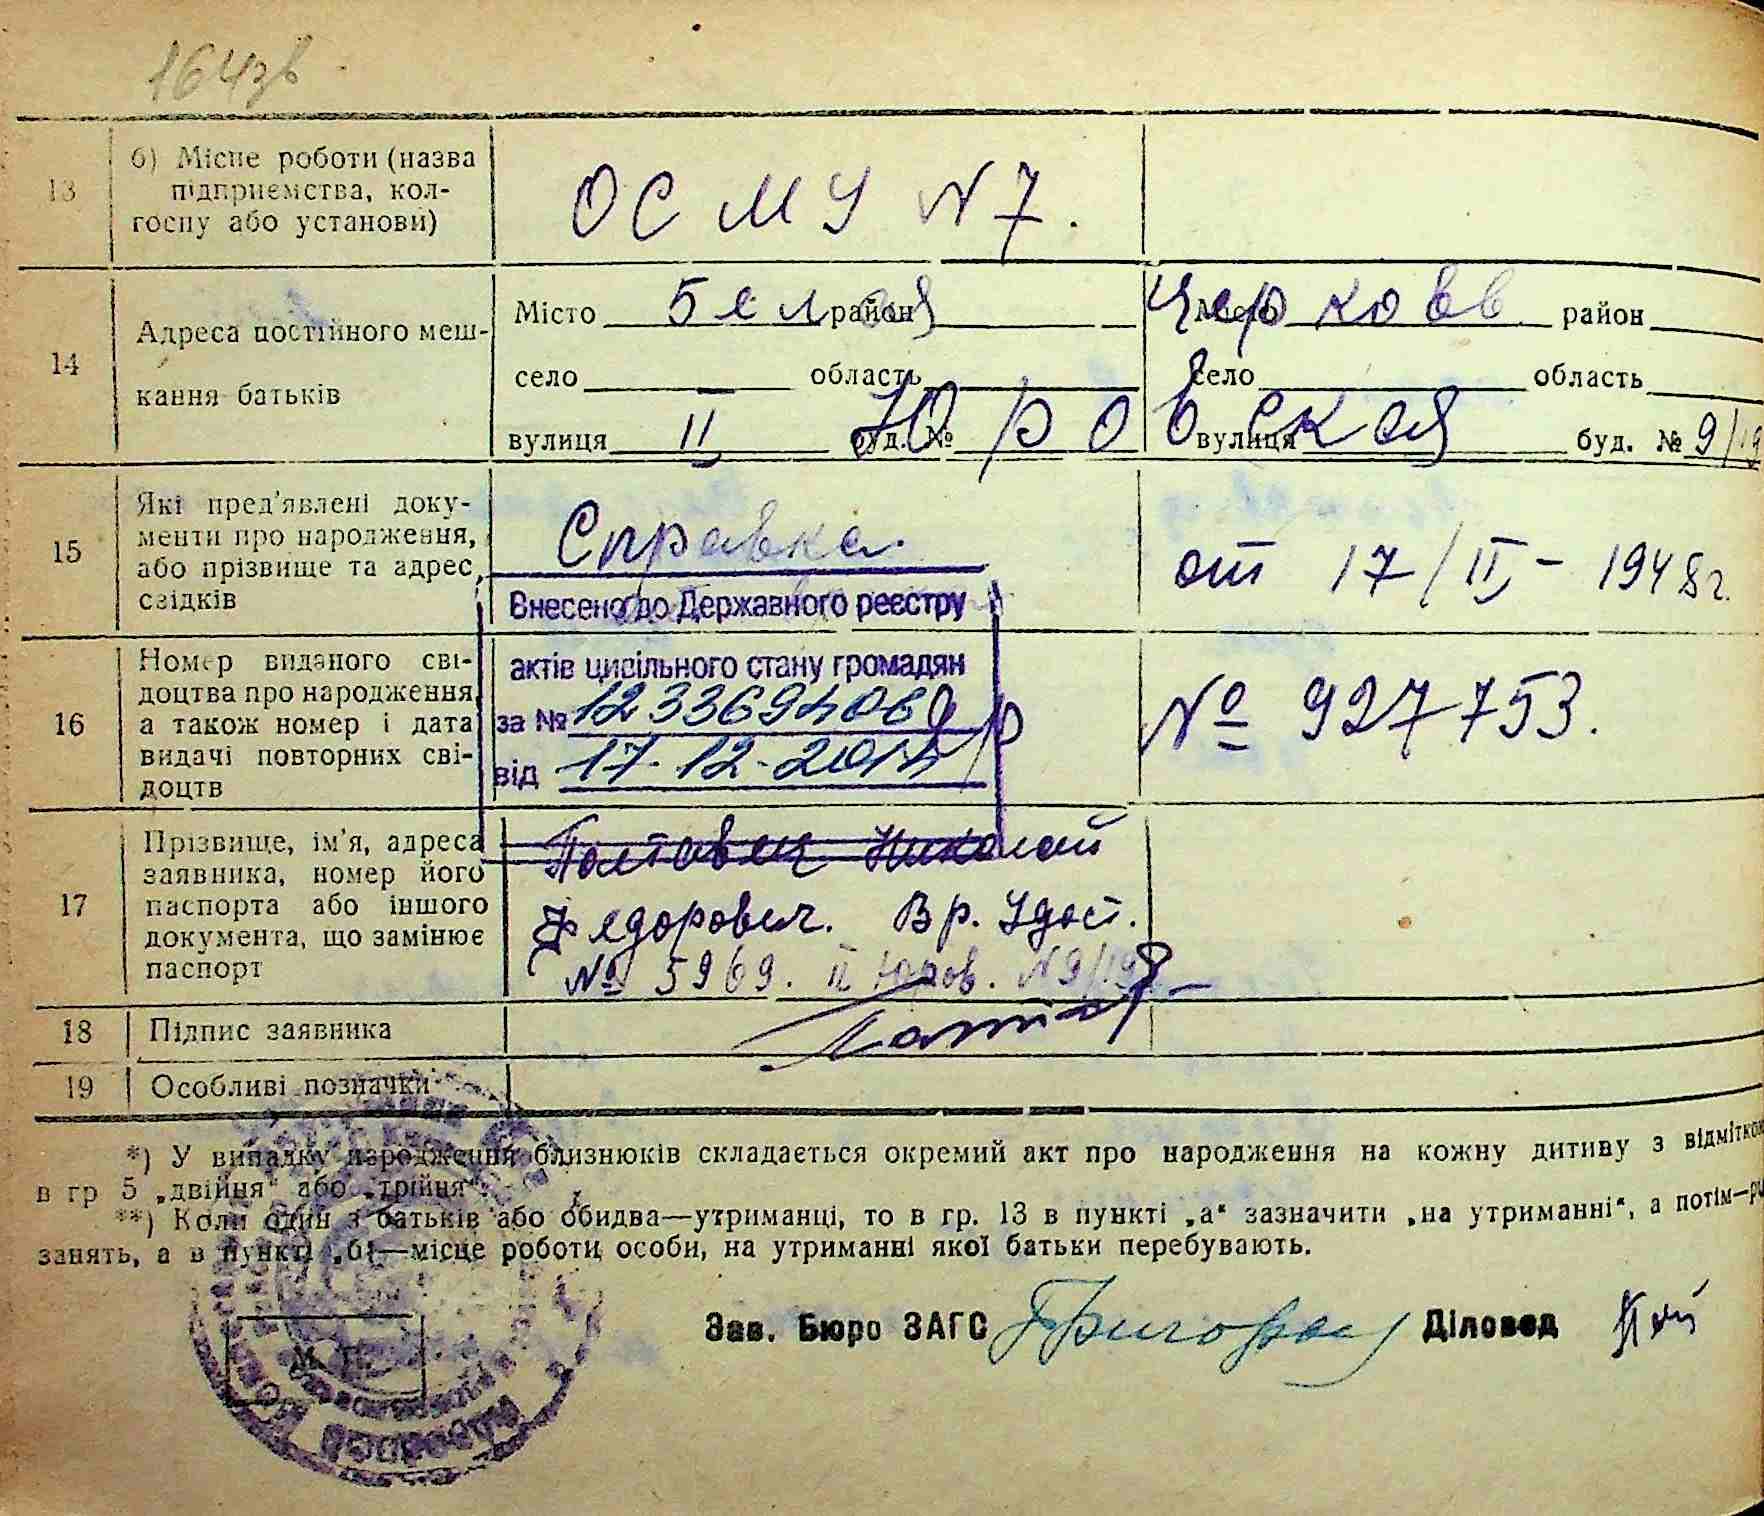 164зв
13
б) Місце роботи (назва
підприємства, кол-
госпу або установи)
ОСМУ N 7.
14
Адреса постійного меш-
кання батьків
Місто Белая район
Місто Церковь район
село область
село область
вулиця II буд. № Юровская
вулиця буд. № 9/19
15
Які пред'явлені доку-
менти про народження,
або прізвище та адрес
свідків
Справка.
от 17/II - 1948 г.
Внесено до Державного реєстру
актів цивільного стану громадян
за №
від 17.12.2014 р
16
Номер виданого сві-
доцтва про народження
а також номер і дата
видачі повторних сві-
доцтв
№ 927753.
17
Прізвище, ім'я, адреса
заявника, номер його
паспорта або іншого
документа, що замінює
паспорт
Полтавец Николай
Федорович. Вр. Удост.
№ 5969. II Юров. N 9/19
18
Підпис заявника
19
Особливі позначки
*) У випадку народження близнюків складається окремий акт про народження на кожну дитину з відміткою
в гр 5 „двійня" або „трійня".
**) Коли один з батьків або обидва—утриманці, то в гр. 13 в пункті „а" зазначити „на утриманні", а потім—рід
занять, а в пункті „б"—місце роботи особи, на утриманні якої батьки перебувають.
Зав. Бюро ЗАГС Діловод
М. П.